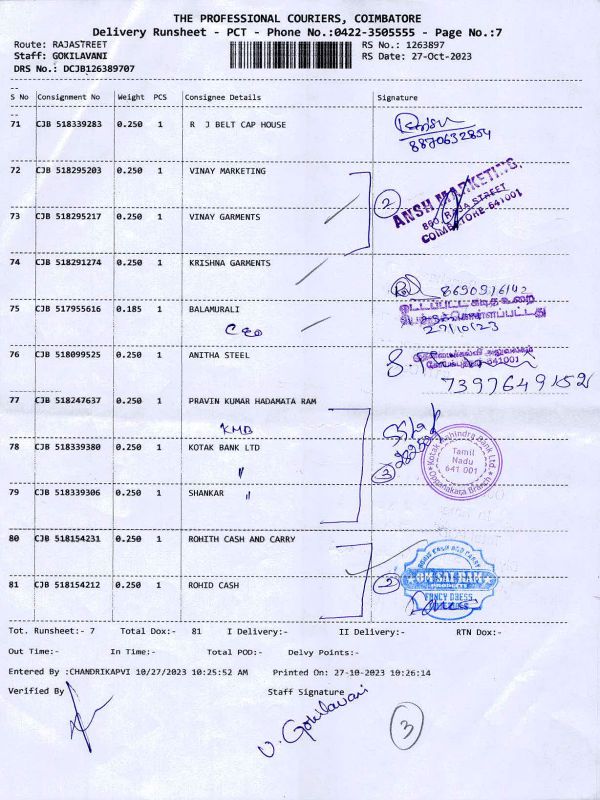 THE PROFESSIONAL COURIERS, COIMBATORE
Delivery Runsheet - PCT - Phone No.:0422-3505555 - Page No.:7
Route: RAJASTREET RS No.: 1263897
Staff: GOKILAVANI RS Date: 27-Oct-2023
DRS No.: DCJB126389707
S No Consignment No Weight PCS Consignee Details Signature
71 CJB 518339283 0.250 1 R J BELT CAP HOUSE
8870632854
72 CJB 518295203 0.250 1 VINAY MARKETING
2
ANSH MARKETING,
RAJA STREET
COIMBATORE-641001
73 CJB 518295217 0.250 1 VINAY GARMENTS
74 CJB 518291274 0.250 1 KRISHNA GARMENTS
75 CJB 517955616 0.185 1 BALAMURALI
CEO
ஒட்டப்பட்ட கடித உறை
பெற்றுக்கொள்ளப்பட்டது
27/10/23
76 CJB 518099525 0.250 1 ANITHA STEEL
641001
7397649152
77 CJB 518247637 0.250 1 PRAVIN KUMAR HADAMATA RAM
KMB
78 CJB 518339380 0.250 1 KOTAK BANK LTD
"
3
Kotak Mahindra Bank Ltd.
Tamil
Nadu
641 001
Oppanakara Branch
79 CJB 518339306 0.250 1 SHANKAR "
80 CJB 518154231 0.250 1 ROHITH CASH AND CARRY
2
CASH AND CARRY
OM SAI RAM
FANCY DRESS
81 CJB 518154212 0.250 1 ROHID CASH
Tot. Runsheet:- 7 Total Dox:- 81 I Delivery:- II Delivery:- RTN Dox:-
Out Time:- In Time:- Total POD:- Delvy Points:-
Entered By :CHANDRIKAPVI 10/27/2023 10:25:52 AM Printed On: 27-10-2023 10:26:14
Verified By Staff Signature
V. Gokilavani
3